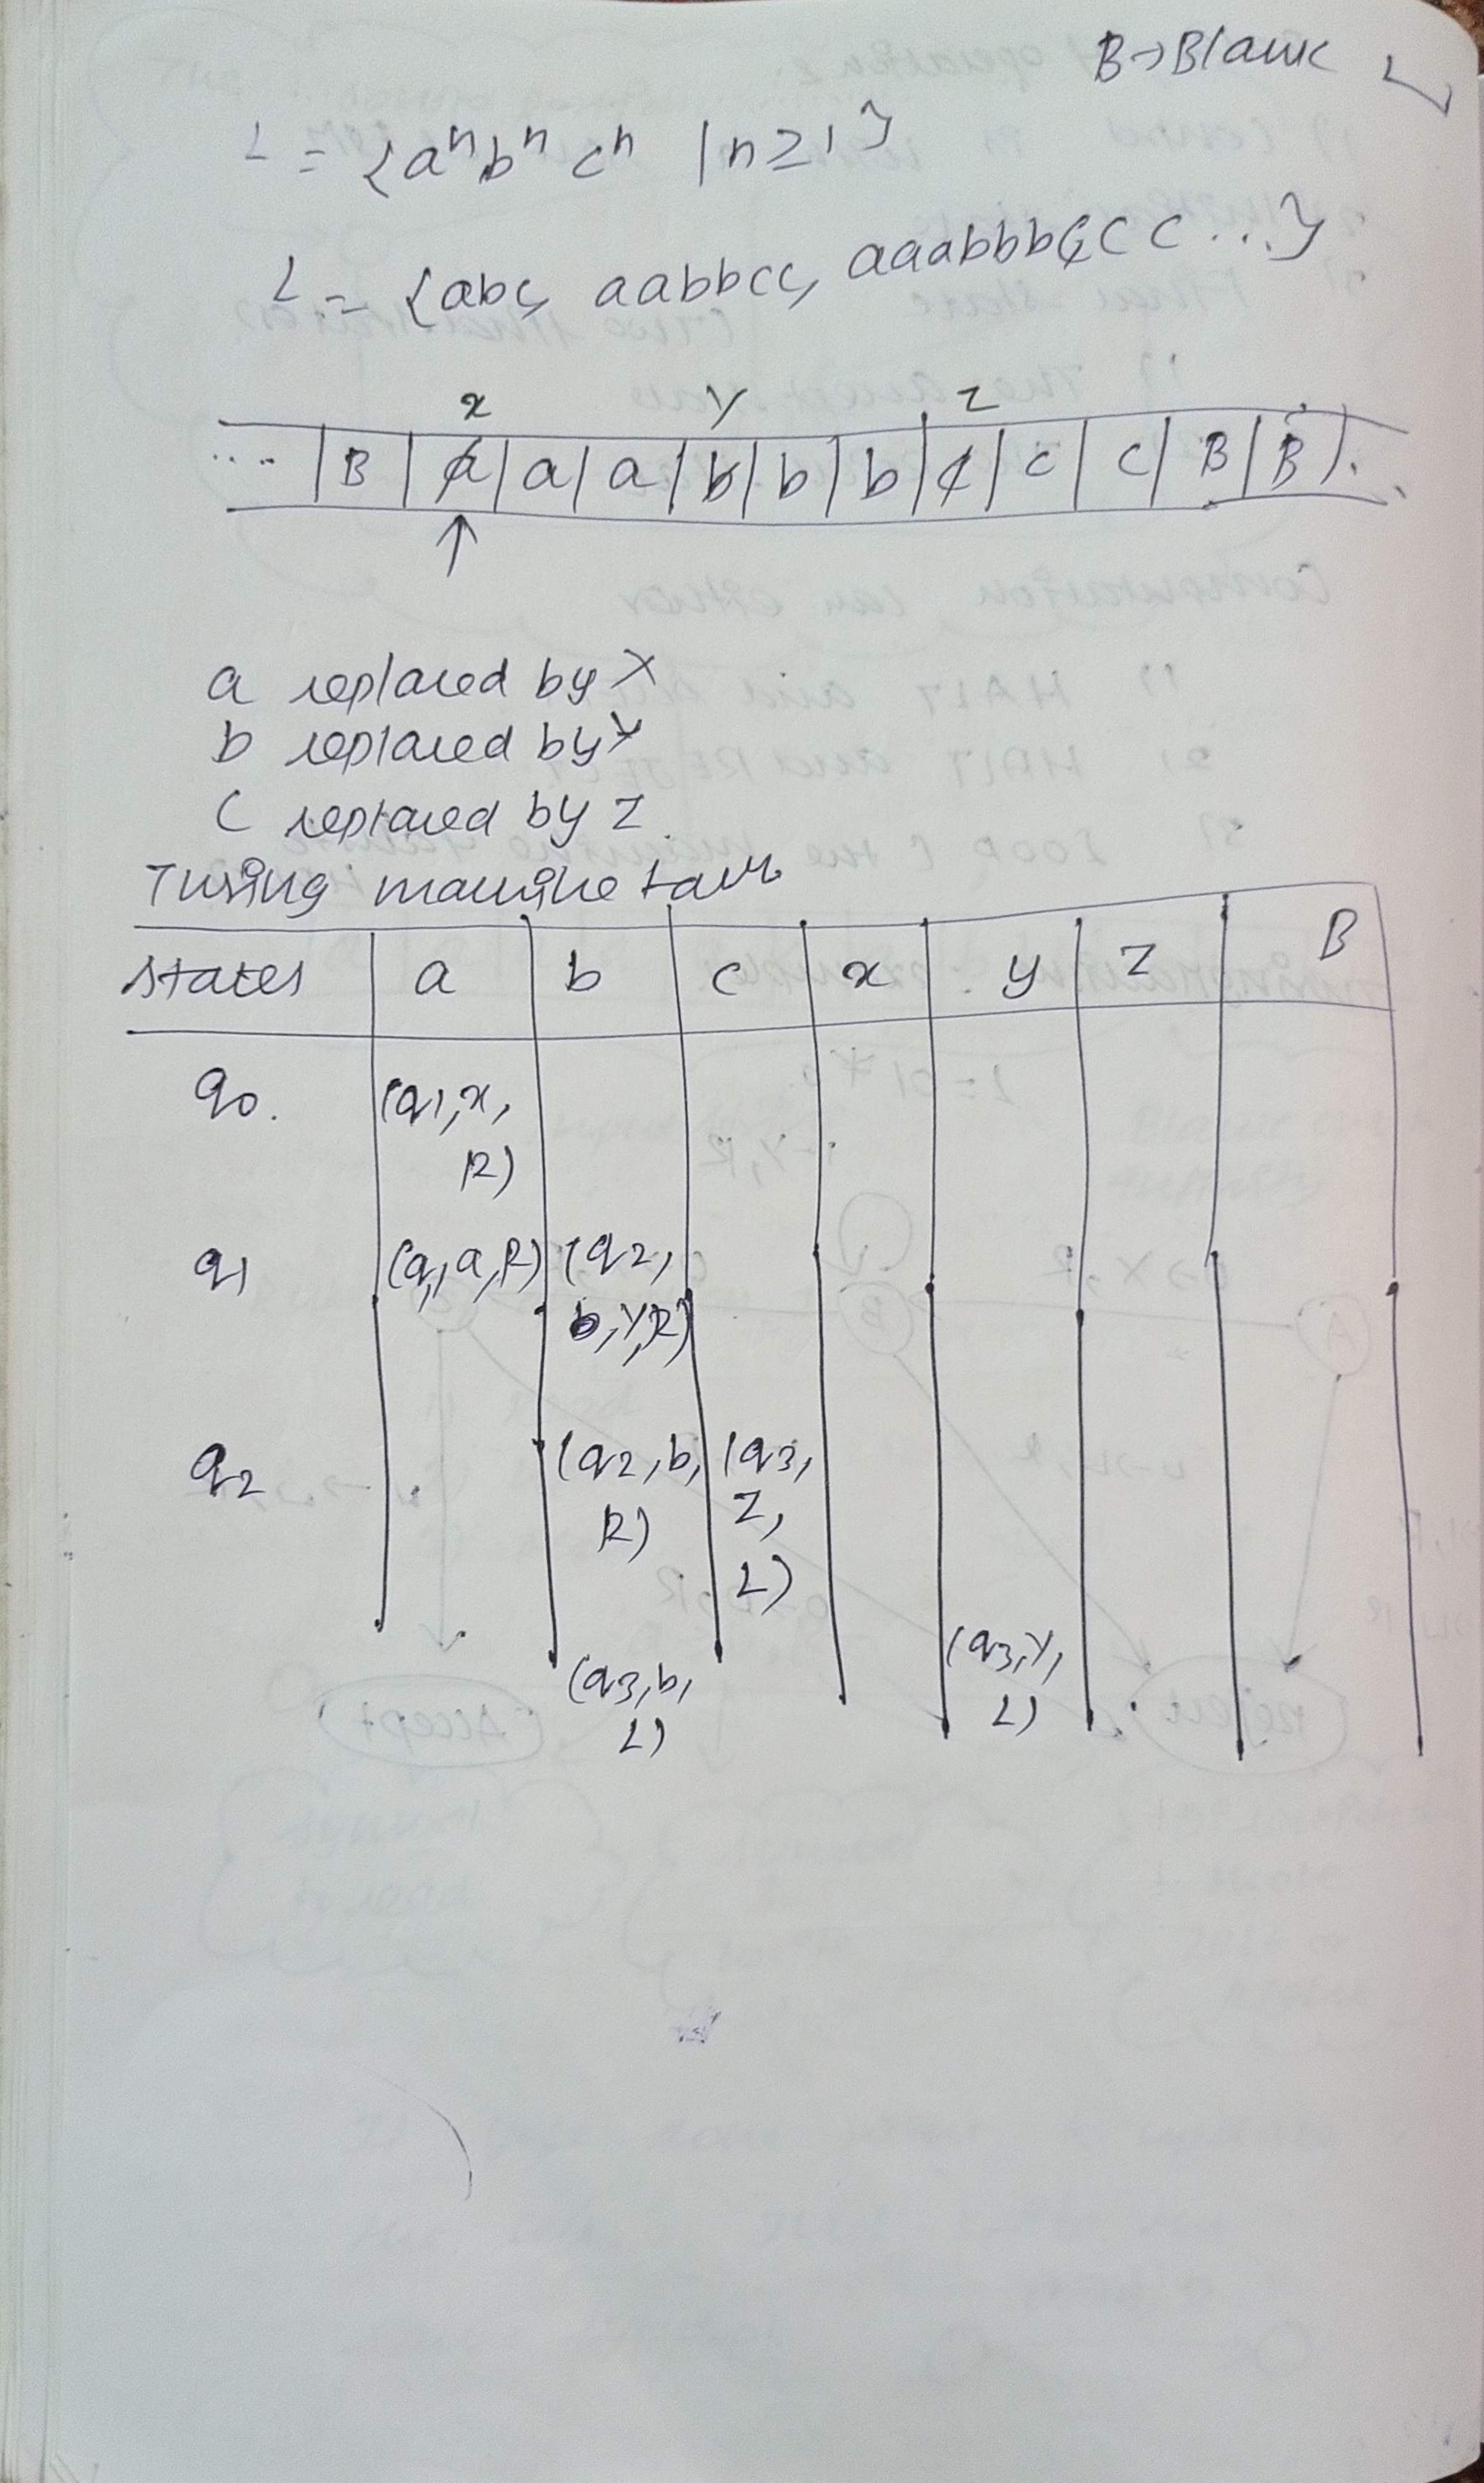 B→Blank
L = {aⁿbⁿcⁿ |n≥1}
L = {abc, aabbcc, aaabbbccc...}
x y z
... |B|a|a|a|b|b|b|c|c|c|B|B|.
a replaced by X
b replaced by Y
C replaced by Z
Turing machine
states a b c x y z B
q0. (q1,x,
R)
q1 (q1,a,R) (q2,
b,Y,R)
q2 (q2,b, (q3,
R) Z,
L)
(q3,b, (q3,Y,
L) L)